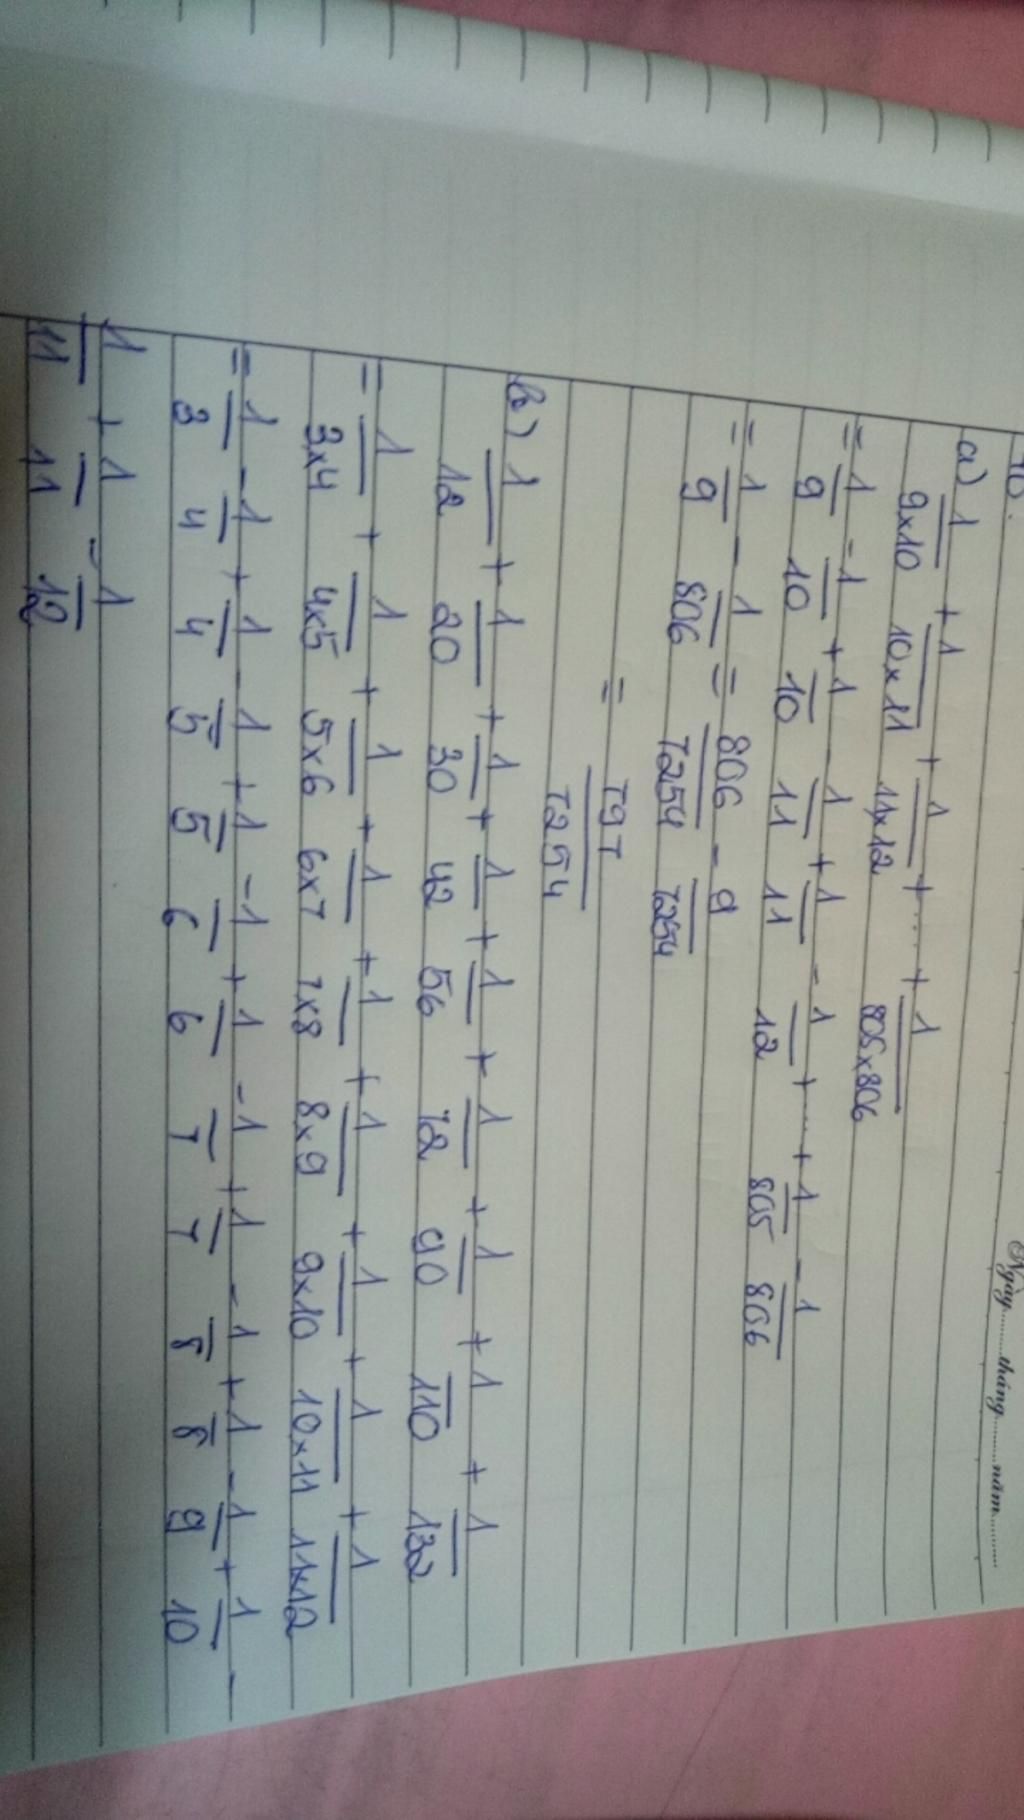 Ngày.........tháng.........năm...........
a) 1/9x10 + 1/10x11 + 1/11x12 + .... + 1/805x806
= 1/9 - 1/10 + 1/10 - 1/11 + 1/11 - 1/12 + .... + 1/805 - 1/806
= 1/9 - 1/806 = 806/7254 - 9/7254
= 797/7254
b) 1/12 + 1/20 + 1/30 + 1/42 + 1/56 + 1/72 + 1/90 + 1/110 + 1/132
= 1/3x4 + 1/4x5 + 1/5x6 + 1/6x7 + 1/7x8 + 1/8x9 + 1/9x10 + 1/10x11 + 1/11x12
= 1/3 - 1/4 + 1/4 - 1/5 + 1/5 - 1/6 + 1/6 - 1/7 + 1/7 - 1/8 + 1/8 - 1/9 + 1/10 -
1/11 + 1/11 - 1/12